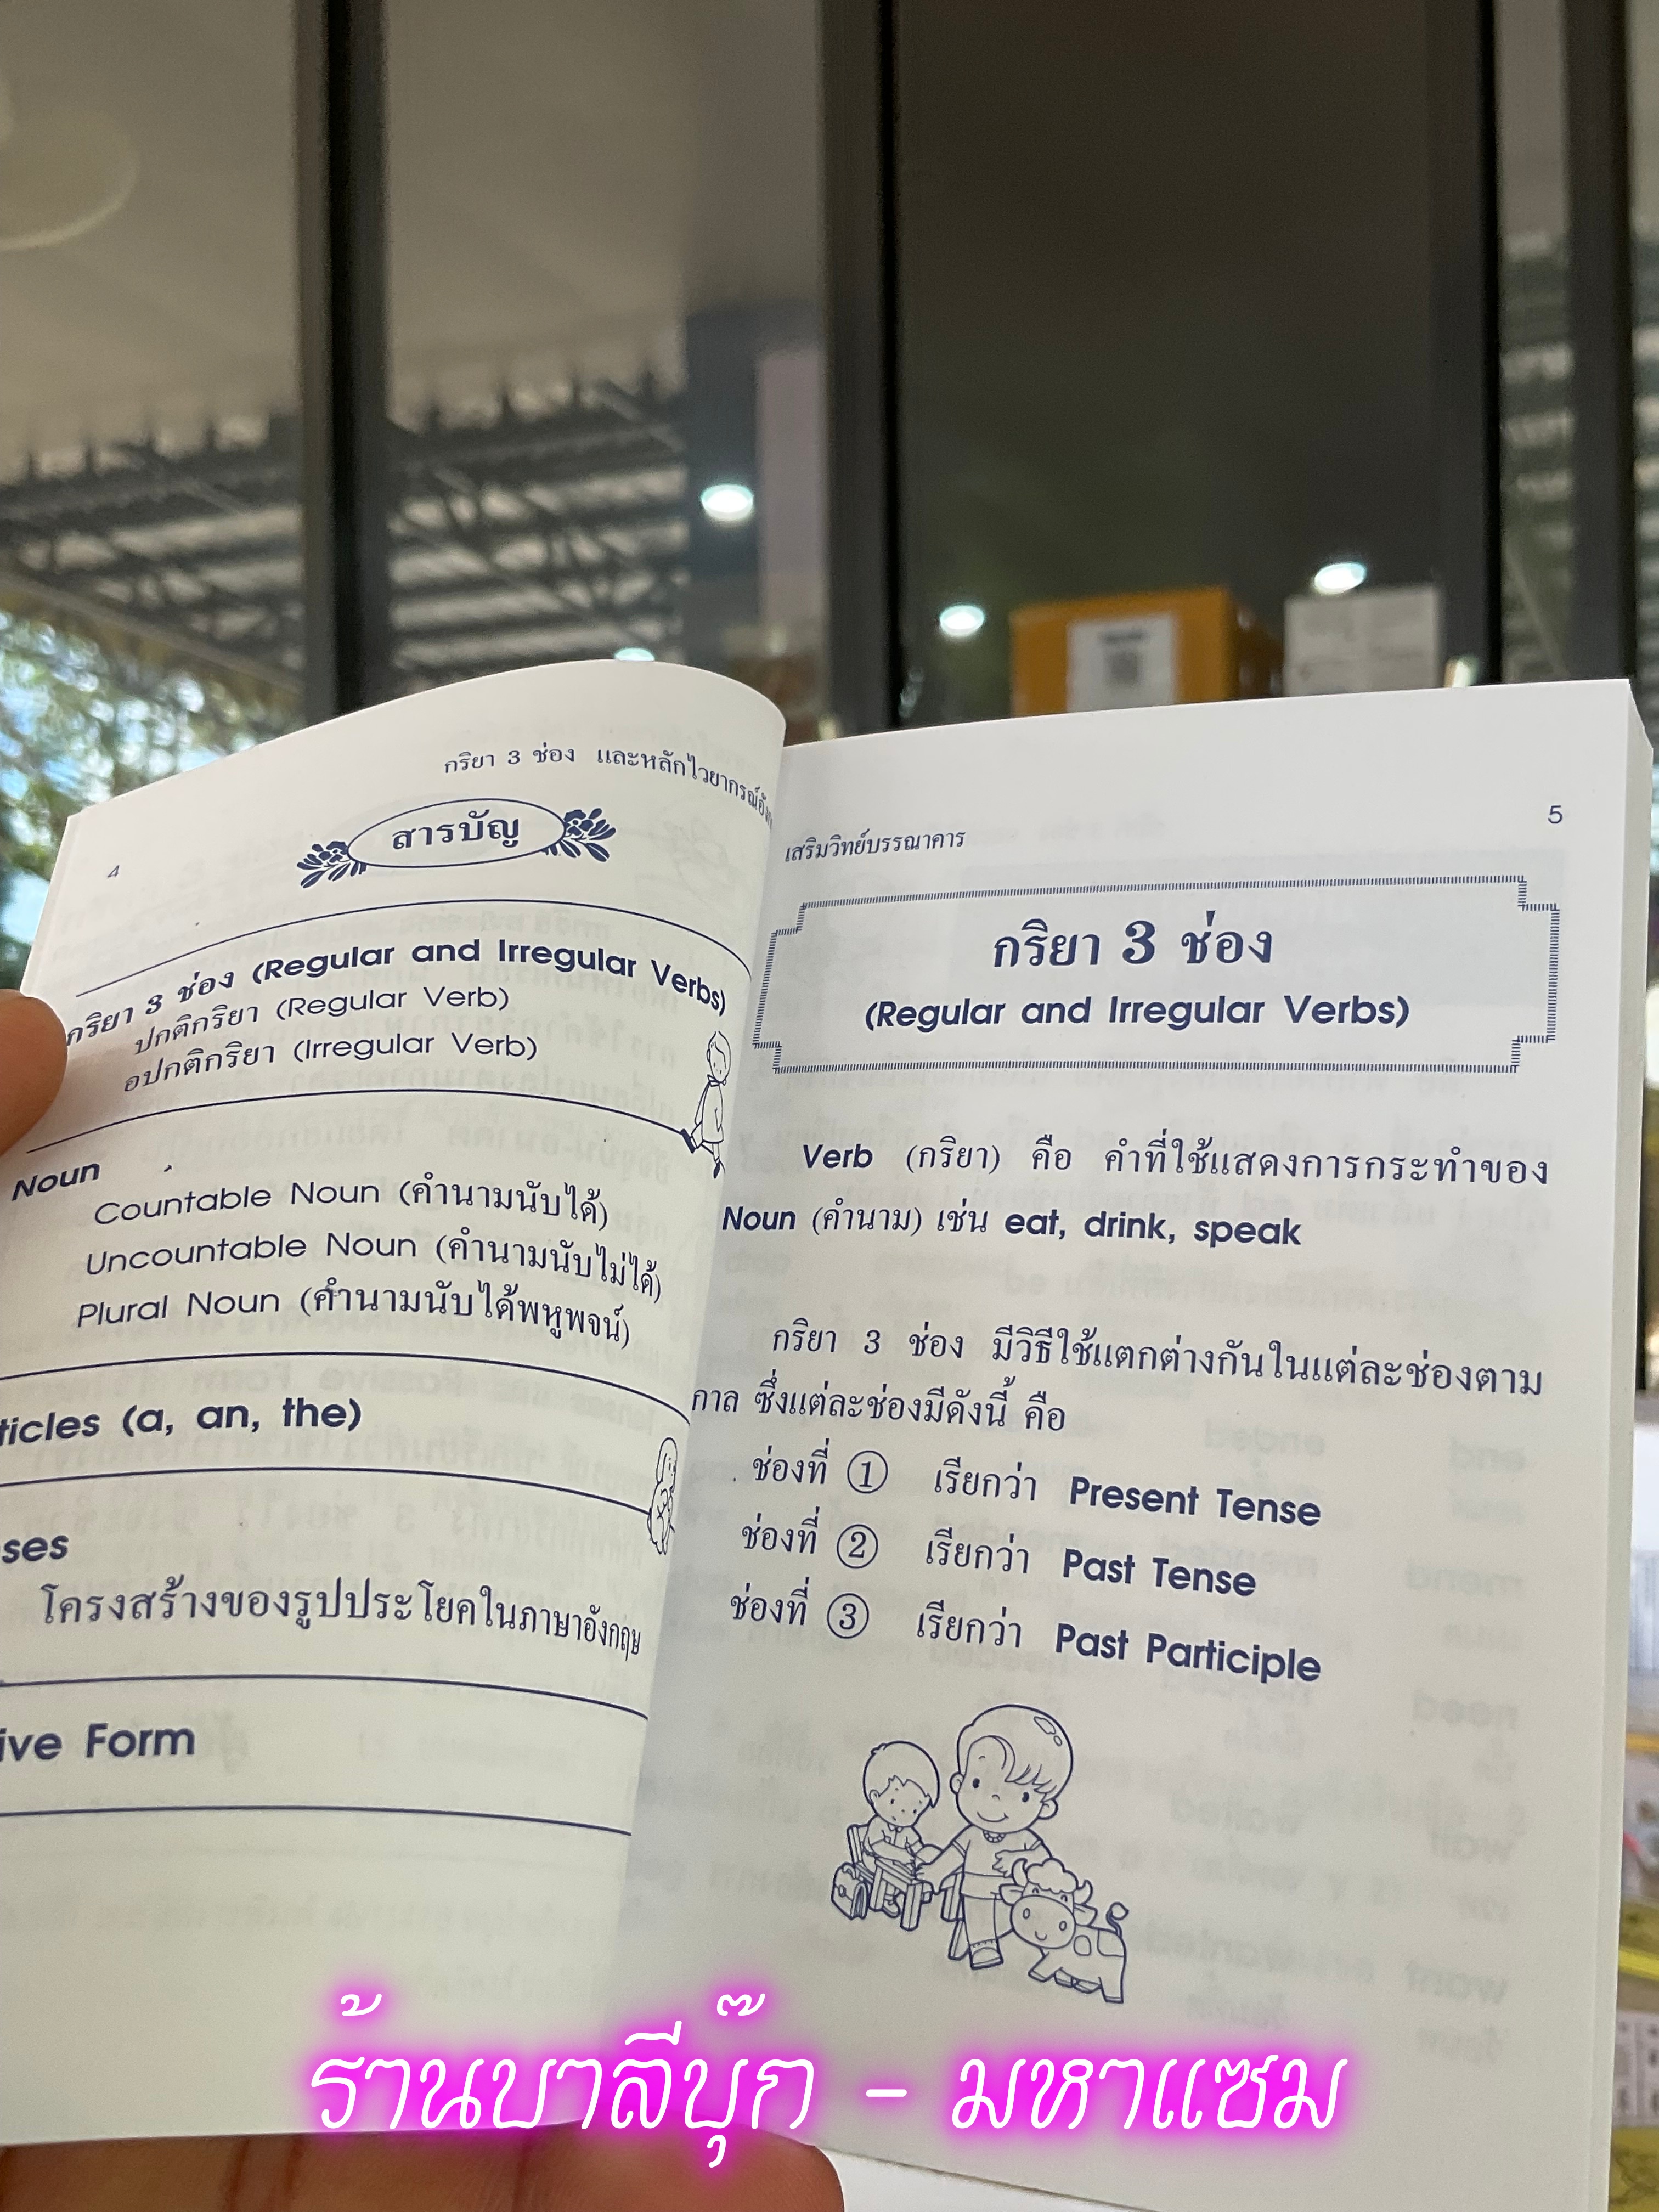 4
กริยา 3 ช่อง และหลักไวยากรณ์
สารบัญ
กริยา 3 ช่อง (Regular and Irregular Verbs)
ปกติกริยา (Regular Verb)
อปกติกริยา (Irregular Verb)
Noun
Countable Noun (คำนามนับได้)
Uncountable Noun (คำนามนับไม่ได้)
Plural Noun (คำนามนับได้พหูพจน์)
ticles (a, an, the)
ses
โครงสร้างของรูปประโยคในภาษาอังกฤษ
ive Form
เสริมวิทย์บรรณาคาร
5
กริยา 3 ช่อง
(Regular and Irregular Verbs)
Verb (กริยา) คือ คำที่ใช้แสดงการกระทำของ
Noun (คำนาม) เช่น eat, drink, speak
กริยา 3 ช่อง มีวิธีใช้แตกต่างกันในแต่ละช่องตาม
กาล ซึ่งแต่ละช่องมีดังนี้ คือ
ช่องที่ ① เรียกว่า Present Tense
ช่องที่ ② เรียกว่า Past Tense
ช่องที่ ③ เรียกว่า Past Participle
ร้านบาลีบุ๊ก - มหาแซม